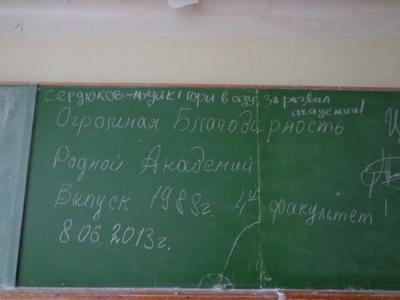 Сердюков - мудак! Гори в аду за развал
академии!
Огромная Благодарность
Родной Академии
Выпуск 1988г. 4й факультет
8.06.2013г.